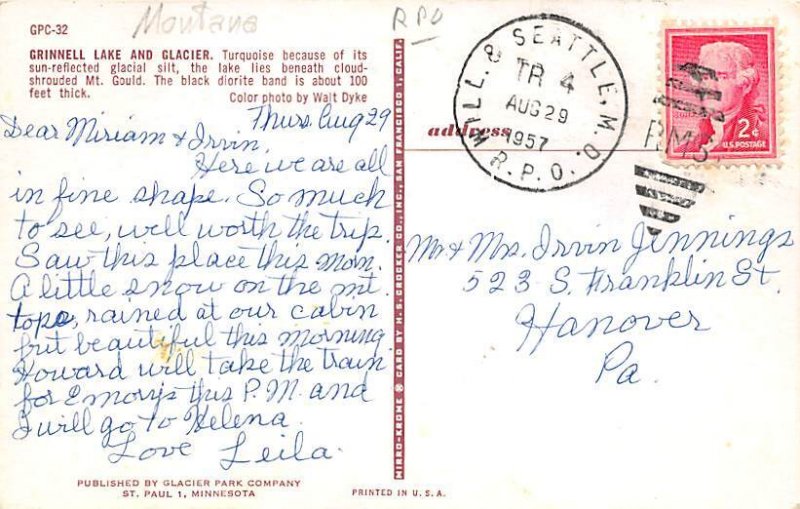 GPC-32
Montana
RPO
GRINNELL LAKE AND GLACIER. Turquoise because of its
sun-reflected glacial silt, the lake lies beneath cloud-
shrouded Mt. Gould. The black diorite band is about 100
feet thick.
Color photo by Walt Dyke
Thurs. Aug 29
Dear Miriam & Irvin,
Here we are all
in fine shape. So much
to see, well worth the trip.
Saw this place this morn.
A little snow on the mt.
tops, rained at our cabin
but beautiful this morning.
Howard will take the train
for Emorys this P.M. and
I will go to Helena.
Love Leila.
PUBLISHED BY GLACIER PARK COMPANY
ST. PAUL 1, MINNESOTA
MIRRO-KROME ® CARD BY H. S. CROCKER CO., INC., SAN FRANCISCO 1, CALIF.
PRINTED IN U.S.A.
address
WILL. & SEATTLE, M.D.
TR 4
AUG 29
1957
R.P.O.
R.M.S.
2¢
U.S. POSTAGE
Mr. & Mrs. Irvin Jennings
523 S. Franklin St.
Hanover
Pa.